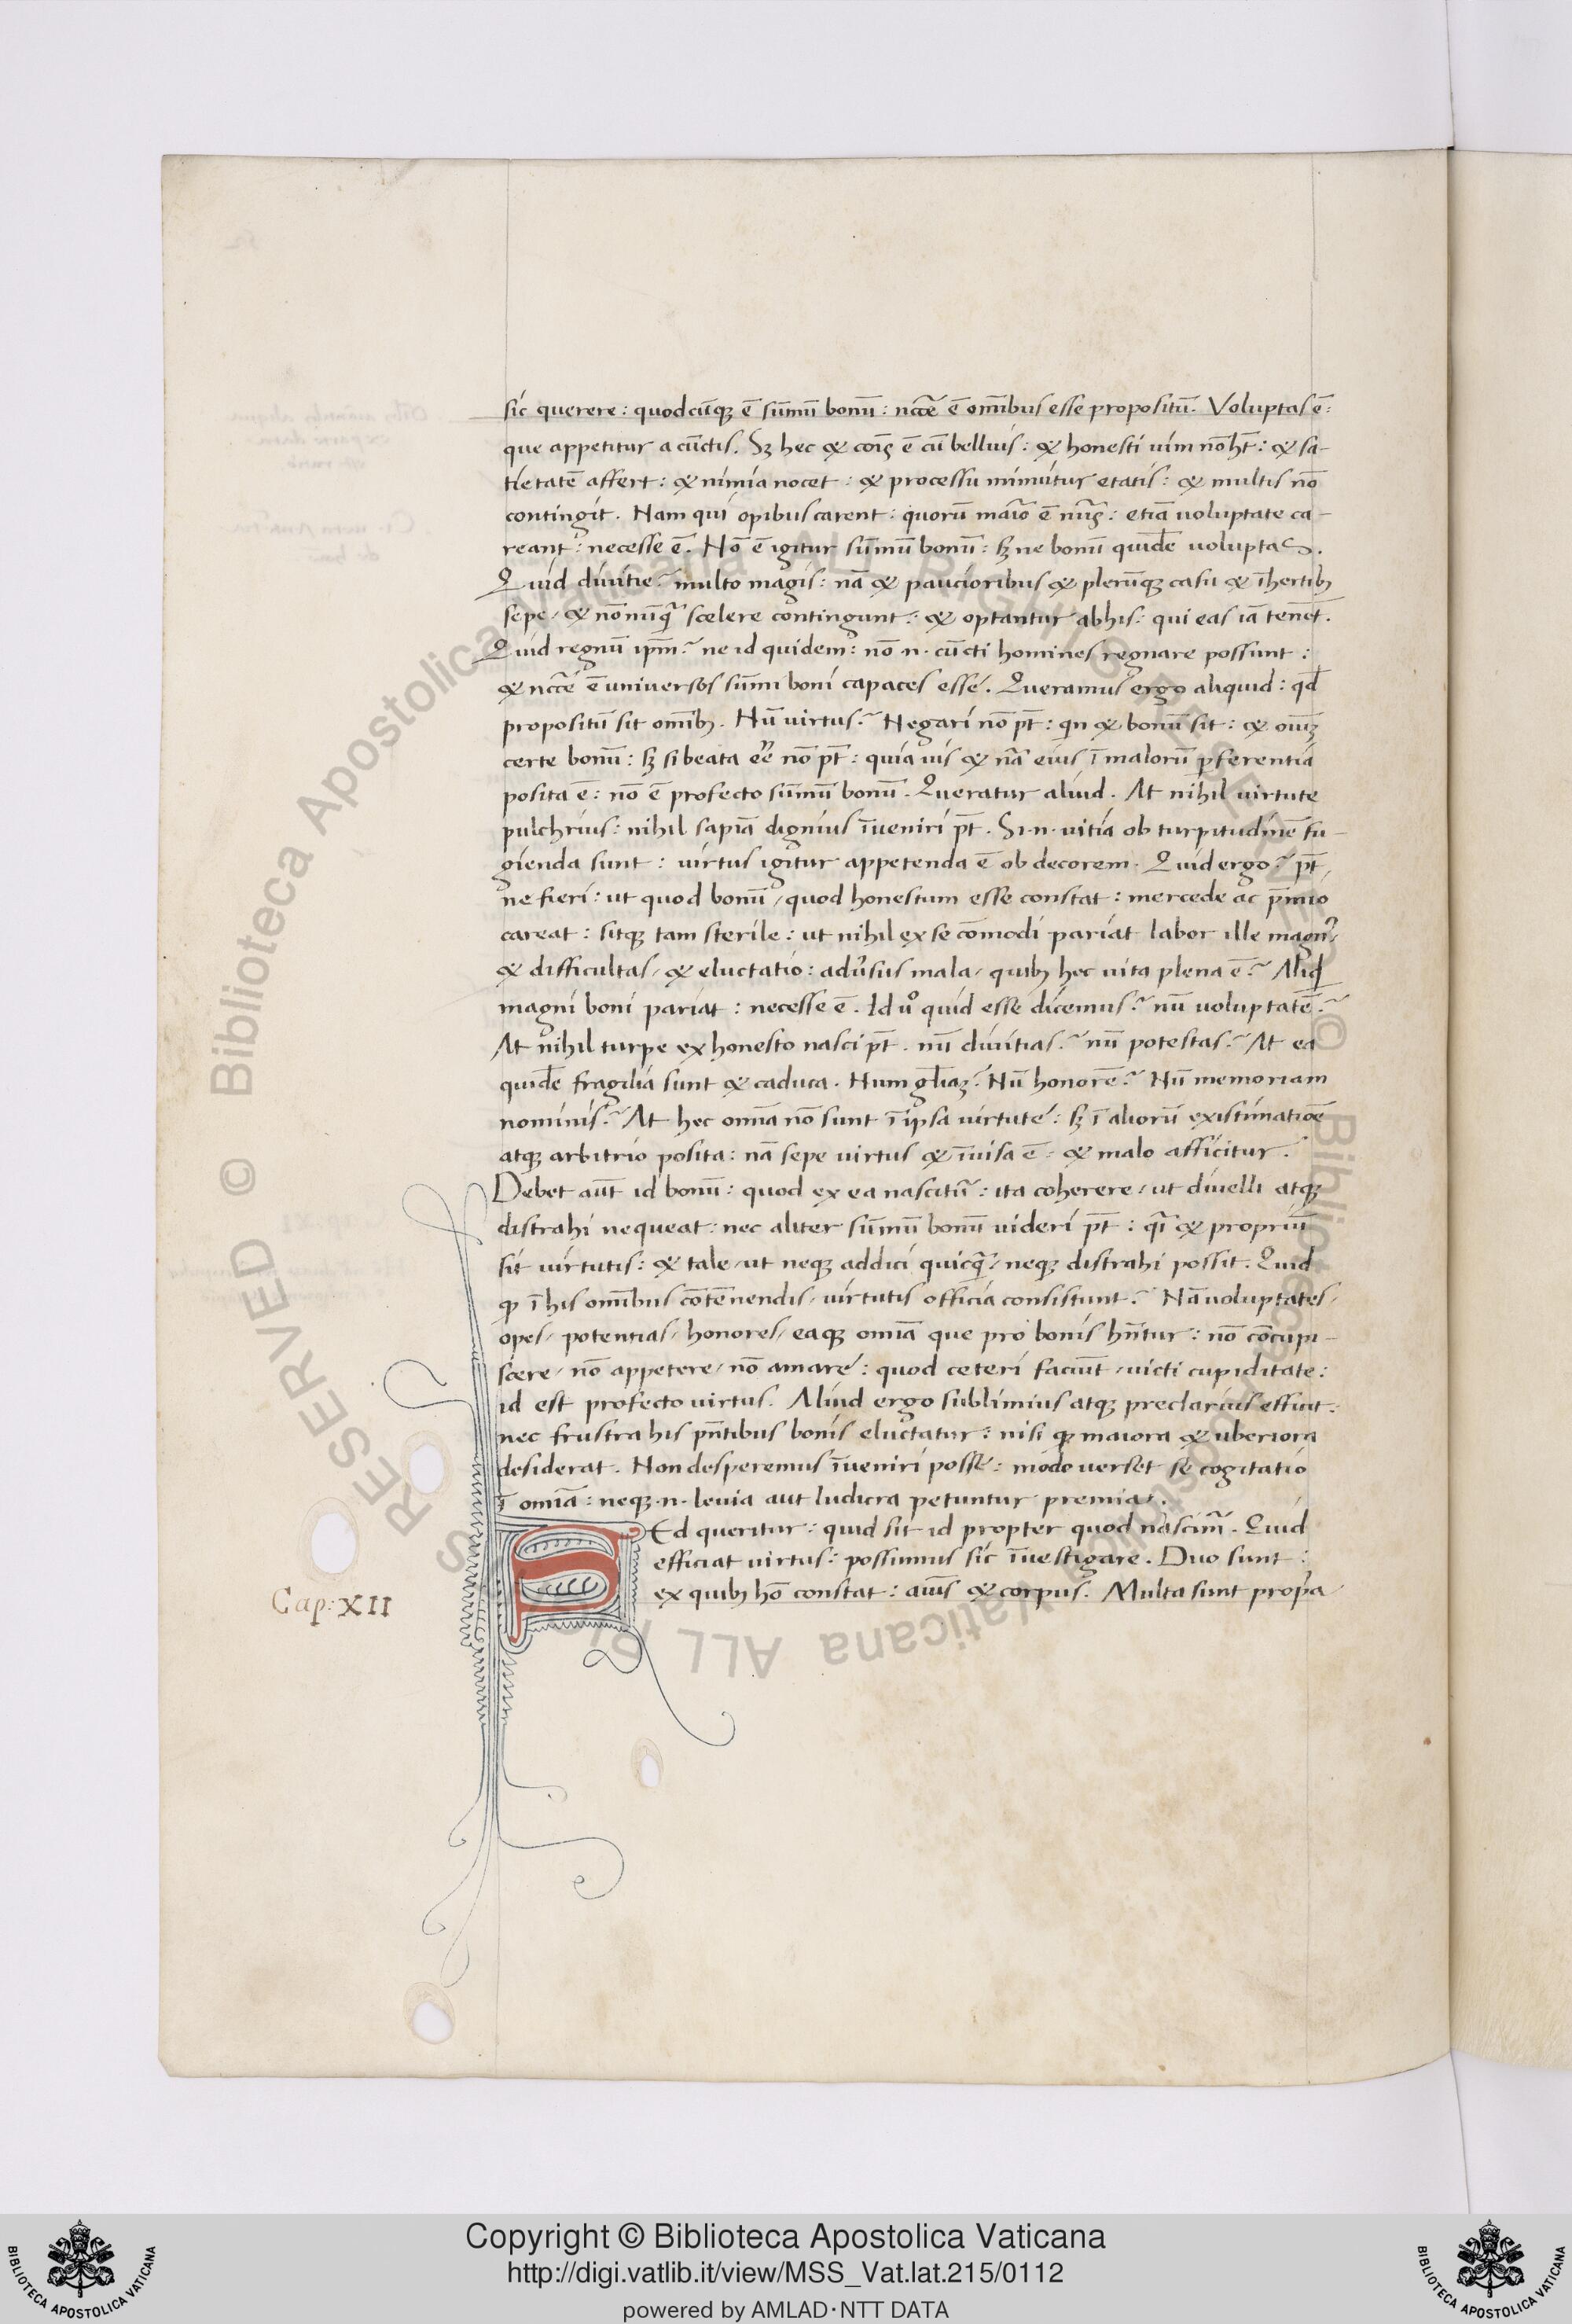 sic querere: quodcūqꝫ ē sūmū bonū: nccē ē omībus esse propositū. Voluptas ē:
que appetitur a cūctis. Sꝫ hec & coīs ē cū belluis: & honesti uim nō hт̄: & sa-
tietatē affert: & nimia nocet: & processu minuitur etatis: & multis nō
contingit. Nam qui opibus carent: quorū maīo ē nūs: etiā voluptate ca-
reant: necesse ē. Nō ē igitur sūmū bonū: sꝫ ne bonū quidē voluptas.
Quid divitie? multo magis: nā & paucioribus & plerūqꝫ casu & īhertibꝫ
sepe, & nōnūq̄ scelere contingunt: & optantur ab his: qui eas iā tenēt.
Quid regnū ip̄m? ne id quidem: nō .n. cūcti homines regnare possunt:
& nccē ē universos sūmi boni capaces esse. Queramus ergo aliquid: qd̄
propositū sit omībꝫ. Nū virtus? Negari nō pт̄: qn & bonū sit: & oīuꝫ
certe bonū: sꝫ si beata eē nō pт̄: quia uis & nā eius ī malorū ꝑferentia
posita ē: nō ē profecto sūmū bonū. Queratur aliud. At nihil virtute
pulchrius: nihil sapiā dignius īveniri pт̄. Si .n. vitia ob turpitudinē fu-
gienda sunt: virtus igitur appetenda ē ob decorem. Quid ergo? pт̄
ne fieri: ut quod bonū, quod honestum esse constat: mercede ac p̄mio
careat: sitqꝫ tam sterile: ut nihil ex se cōmodi pariat labor ille magn᷒,
& difficultas, & eluctatio: adūsus mala, quibꝫ hec vita plena ē? Aliqd
magni boni pariat: necesse ē. Id uͦ quid esse dicemus? nū voluptatē?
At nihil turpe ex honesto nasci pт̄. nū divitias? nū potestas? At ea
quidē fragilia sunt & caduca. Num gl̄iaꝫ? Nū honorē? Nū memoriam
nominis? At hec omīa nō sunt ī ipsa virtute: sꝫ ī aliorū existimatiōe
atqꝫ arbitrio posita: nā sepe virtus & īvisa ē: & malo afficitur.
Debet aūt id bonū: quod ex ea nascitū: ita coherere, ut divelli atqꝫ
distrahi nequeat: nec aliter sūmū bonū videri pт̄: qī & propriū
sit virtutis: & tale, ut neqꝫ addici quicq̄, neqꝫ distrahi possit. Quid
ꝙ ī his omībus cōtēnendis, virtutis officia consistunt? Nā voluptates,
opes, potentias, honores, eaqꝫ omīa que pro bonis hn̄tur: nō cōcupi-
scere, nō appetere, nō amare: quod ceteri faciūt, victi cupiditate:
id est profecto virtus. Aliud ergo sublimius atqꝫ preclarius effiut:
nec frustra his pn̄tibus bonis eluctatur: nisi ꝙ maiora & uberiora
desiderat. Non desperemus īveniri posse: modo verset se cogitatio
ī omīa: neqꝫ .n. levia aut ludicra petuntur premia.
SEd queritur: quid sit id propter quod nascim̄. Quid
efficiat virtus: possumus sic īvestigare. Duo sunt:
ex quibꝫ hō constat: aīus & corpus. Multa sunt prop̄a
Cap: XII
Copyright © Biblioteca Apostolica Vaticana
http://digi.vatlib.it/view/MSS_Vat.lat.215/0112
powered by AMLAD·NTT DATA
BIBLIOTECA APOSTOLICA VATICANA
BIBLIOTECA APOSTOLICA VATICANA